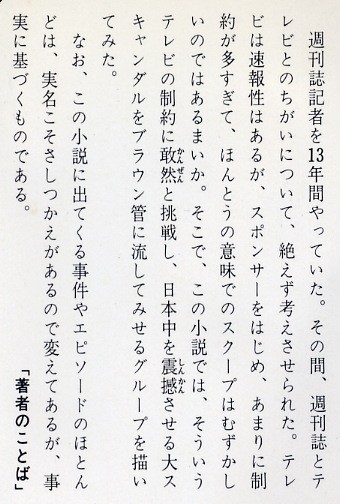 週刊誌記者を13年間やっていた。その間、週刊誌とテ
レビとのちがいについて、絶えず考えさせられた。テレ
ビは速報性はあるが、スポンサーをはじめ、あまりに制
約が多すぎて、ほんとうの意味でのスクープはむずかし
いのではあるまいか。そこで、この小説では、そういう
テレビの制約に敢然と挑戦し、日本中を震撼させる大ス
キャンダルをブラウン管に流してみせるグループを描い
てみた。
　なお、この小説に出てくる事件やエピソードのほとん
どは、実名こそさしつかえがあるので変えてあるが、事
実に基づくものである。
「著者のことば」